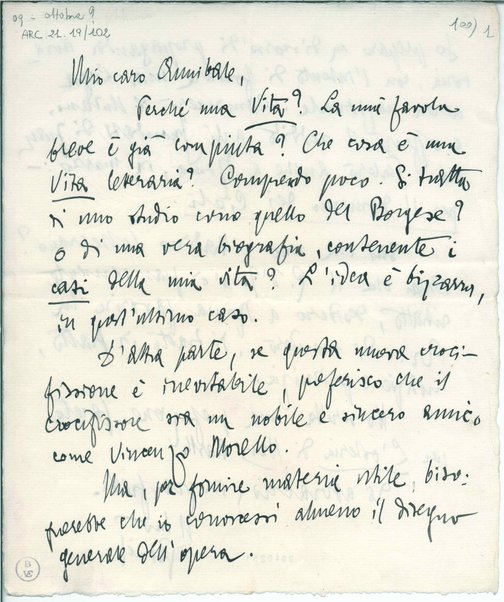 09 - ottobre ?
ARC. 21. 19/102
100) 1
Mio caro Annibale,
Perché una Vita? La mia favola
breve è già compiuta? Che cosa è una
Vita letteraria? Comprendo poco. Si tratta
di uno studio come quello del Borgese?
o di una vera biografia, contenente i
casi della mia vita? L'idea è bizzarra,
in quest'ultimo caso.
D'altra parte, se questa nuova croci-
fissione è inevitabile, preferisco che il
crocifissore sia un nobile e sincero amico
come Vincenzo Morello.
Ma, per fornire materia utile, biso-
gnerebbe che io conoscessi almeno il disegno
generale dell'opera.